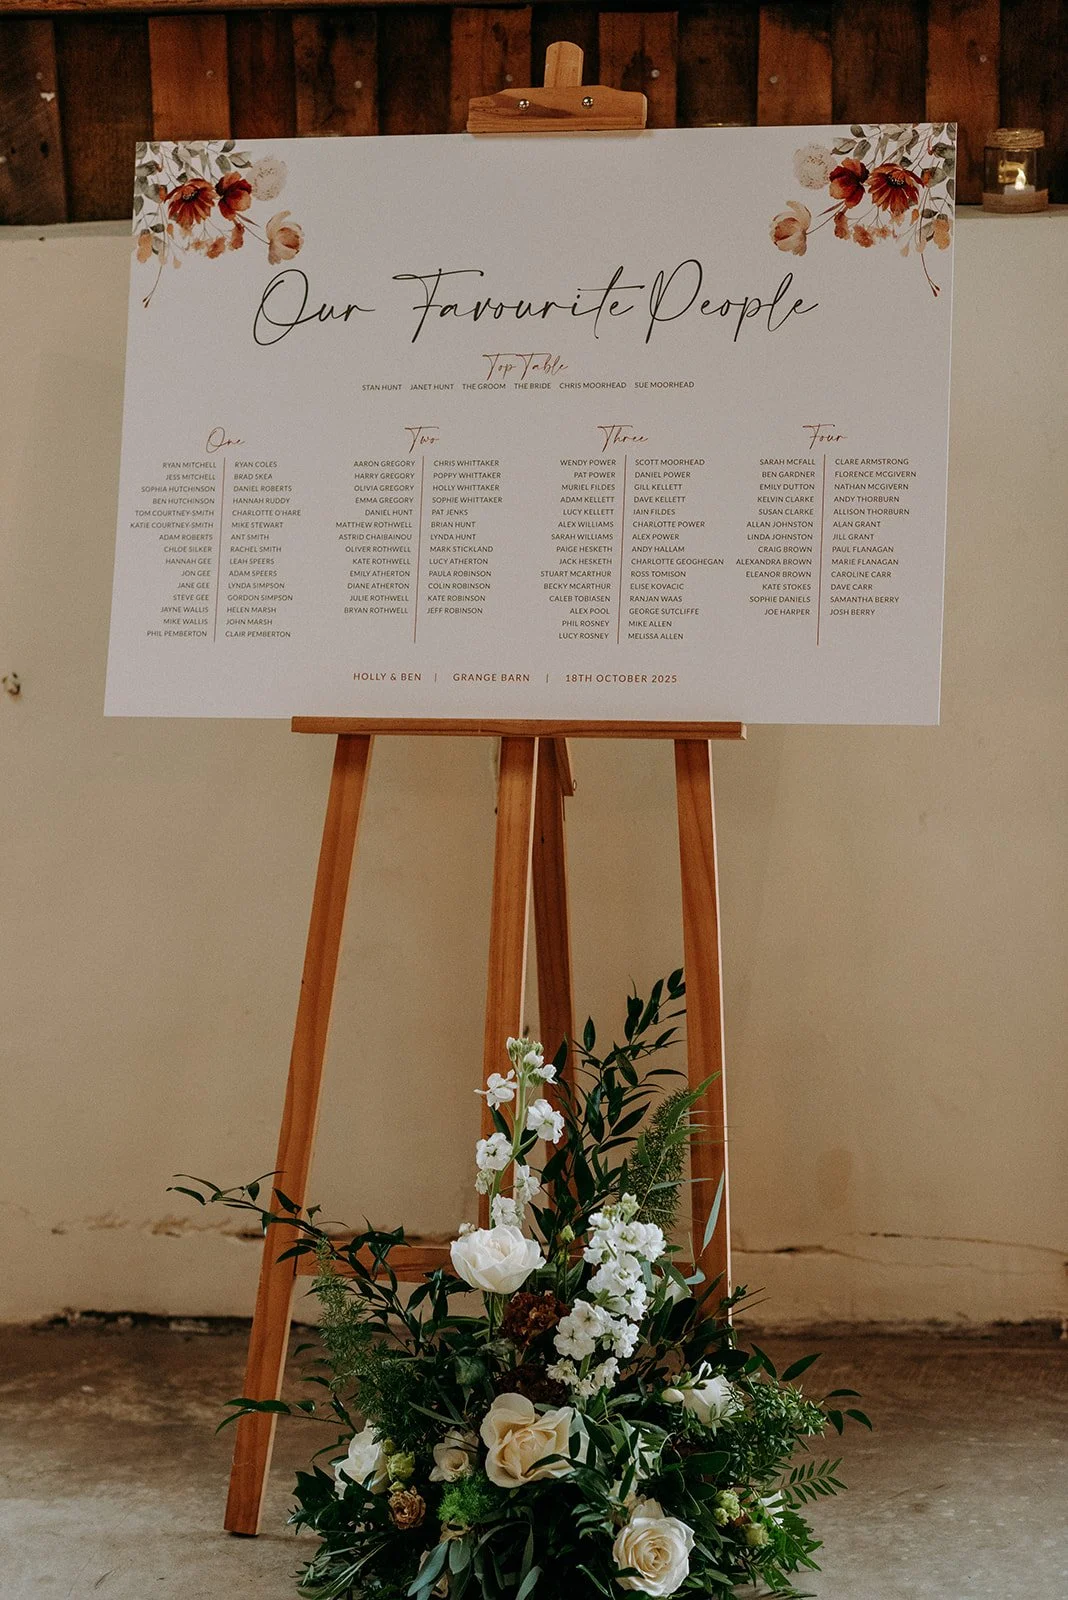 Our Favourite People
Top Table
STAN HUNT JANET HUNT THE GROOM THE BRIDE CHRIS MOORHEAD SUE MOORHEAD
One
RYAN MITCHELL
JESS MITCHELL
SOPHIA HUTCHINSON
BEN HUTCHINSON
TOM COURTNEY-SMITH
KATIE COURTNEY-SMITH
ADAM ROBERTS
CHLOE SILKER
HANNAH GEE
JON GEE
JANE GEE
STEVE GEE
JAYNE WALLIS
MIKE WALLIS
PHIL PEMBERTON
RYAN COLES
BRAD SKEA
DANIEL ROBERTS
HANNAH RUDDY
CHARLOTTE O'HARE
MIKE STEWART
ANT SMITH
RACHEL SMITH
LEAH SPEERS
ADAM SPEERS
LYNDA SIMPSON
GORDON SIMPSON
HELEN MARSH
JOHN MARSH
CLAIR PEMBERTON
Two
AARON GREGORY
HARRY GREGORY
OLIVIA GREGORY
EMMA GREGORY
DANIEL HUNT
MATTHEW ROTHWELL
ASTRID CHAIBAINOU
OLIVER ROTHWELL
KATE ROTHWELL
EMILY ATHERTON
DIANE ATHERTON
JULIE ROTHWELL
BRYAN ROTHWELL
CHRIS WHITTAKER
POPPY WHITTAKER
HOLLY WHITTAKER
SOPHIE WHITTAKER
PAT JENKS
BRIAN HUNT
LYNDA HUNT
MARK STICKLAND
LUCY ATHERTON
PAULA ROBINSON
COLIN ROBINSON
KATE ROBINSON
JEFF ROBINSON
Three
WENDY POWER
PAT POWER
MURIEL FILDES
ADAM KELLETT
LUCY KELLETT
ALEX WILLIAMS
SARAH WILLIAMS
PAIGE HESKETH
JACK HESKETH
STUART MCARTHUR
BECKY MCARTHUR
CALEB TOBIASEN
ALEX POOL
PHIL ROSNEY
LUCY ROSNEY
SCOTT MOORHEAD
DANIEL POWER
GILL KELLETT
DAVE KELLETT
IAIN FILDES
CHARLOTTE POWER
ALEX POWER
ANDY HALLAM
CHARLOTTE GEOGHEGAN
ROSS TOMISON
ELISE KOVACIC
RANJAN WAAS
GEORGE SUTCLIFFE
MIKE ALLEN
MELISSA ALLEN
Four
SARAH MCFALL
BEN GARDNER
EMILY DUTTON
KELVIN CLARKE
SUSAN CLARKE
ALLAN JOHNSTON
LINDA JOHNSTON
CRAIG BROWN
ALEXANDRA BROWN
ELEANOR BROWN
KATE STOKES
SOPHIE DANIELS
JOE HARPER
CLARE ARMSTRONG
FLORENCE MCGIVERN
NATHAN MCGIVERN
ANDY THORBURN
ALLISON THORBURN
ALAN GRANT
JILL GRANT
PAUL FLANAGAN
MARIE FLANAGAN
CAROLINE CARR
DAVE CARR
SAMANTHA BERRY
JOSH BERRY
HOLLY & BEN | GRANGE BARN | 18TH OCTOBER 2025